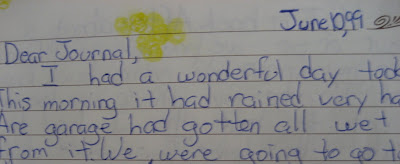 June 10,99
Dear Journal,
I had a wonderful day tod
This morning it had rained very ha
Are garage had gotten all wet
from it. We, were going to go t